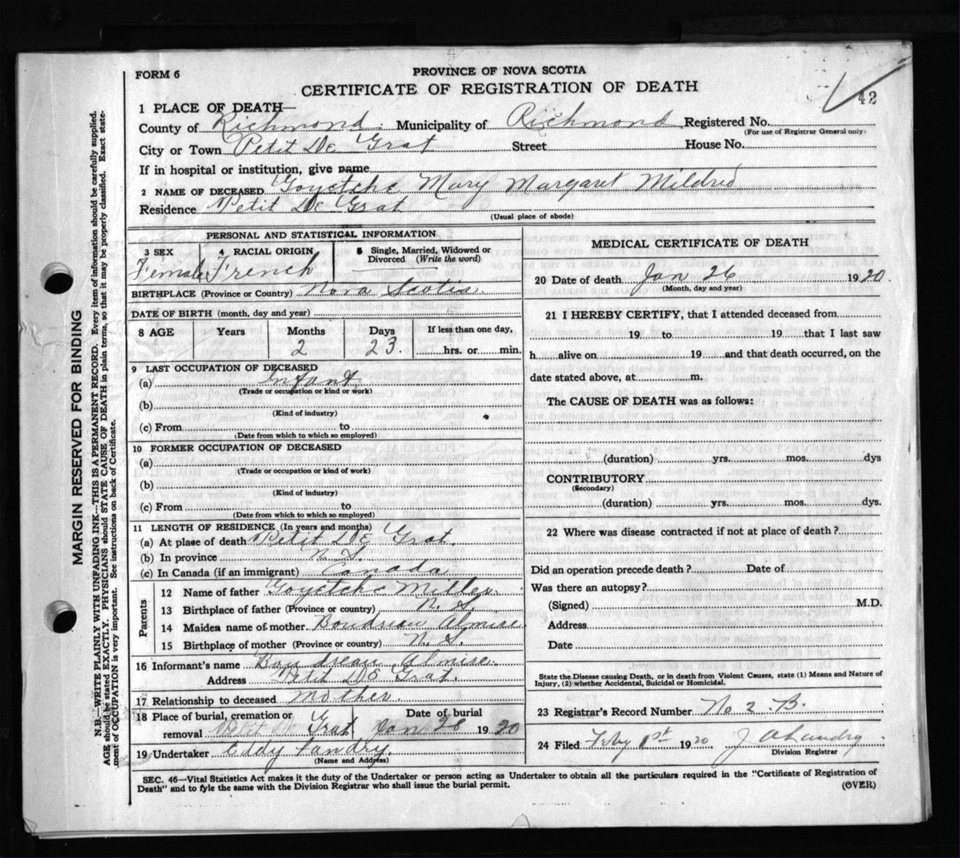 FORM 6
PROVINCE OF NOVA SCOTIA
CERTIFICATE OF REGISTRATION OF DEATH
42
1 PLACE OF DEATH—
County of Richmond Municipality of Richmond Registered No.
(For use of Registrar General only)
City or Town Petit De Grat Street House No.
If in hospital or institution, give name
2 NAME OF DECEASED Goyetche Mary Margaret Mildred
Residence Petit De Grat
(Usual place of abode)
PERSONAL AND STATISTICAL INFORMATION
3 SEX Female
4 RACIAL ORIGIN French
5 Single, Married, Widowed or Divorced (Write the word)
BIRTHPLACE (Province or Country) Nova Scotia
DATE OF BIRTH (month, day and year)
8 AGE Years Months Days If less than one day,
2 23 hrs. or min.
9 LAST OCCUPATION OF DECEASED
(a) Infant
(Trade or occupation or kind or work)
(b)
(Kind of industry)
(c) From to
(Date from which to which so employed)
10 FORMER OCCUPATION OF DECEASED
(a)
(Trade or occupation or kind of work)
(b)
(Kind of industry)
(c) From to
(Date from which to which so employed)
11 LENGTH OF RESIDENCE (In years and months)
(a) At place of death Petit De Grat
(b) In province N S.
(c) In Canada (if an immigrant) Canada
Parents
12 Name of father Goyetche
13 Birthplace of father (Province or country) N. S.
14 Maiden name of mother Boudreau Almise
15 Birthplace of mother (Province or country) N. S.
16 Informant's name Boudreau Almise
Address Petit De Grat.
17 Relationship to deceased Mother
18 Place of burial, cremation or removal Grat Date of burial Jan 28 1920
19 Undertaker Eddy Landry.
(Name and Address)
MEDICAL CERTIFICATE OF DEATH
20 Date of death Jan 26 1920.
(Month, day and year)
21 I HEREBY CERTIFY, that I attended deceased from
19 to 19 that I last saw
h alive on 19 and that death occurred, on the
date stated above, at m.
The CAUSE OF DEATH was as follows:
(duration) yrs. mos. dys
CONTRIBUTORY
(Secondary)
(duration) yrs. mos. dys.
22 Where was disease contracted if not at place of death?
Did an operation precede death? Date of
Was there an autopsy?
(Signed) M.D.
Address
Date
State the Disease causing Death, or in death from Violent Causes, state (1) Means and Nature of
Injury, (2) whether Accidental, Suicidal or Homicidal.
23 Registrar's Record Number No 2 B.
24 Filed 1st 1920 Landry
Division Registrar
SEC. 46—Vital Statistics Act makes it the duty of the Undertaker or person acting as Undertaker to obtain all the particulars required in the "Certificate of Registration of
Death" and to fyle the same with the Division Registrar who shall issue the burial permit.
(OVER)
MARGIN RESERVED FOR BINDING
N.B.—WRITE PLAINLY WITH UNFADING INK—THIS IS A PERMANENT RECORD. Every item of information should be carefully supplied.
AGE should be stated EXACTLY. PHYSICIANS should STATE CAUSE OF DEATH in plain terms, so that it may be properly classified. Exact state-
ment of OCCUPATION is very important. See instructions on back of Certificate.